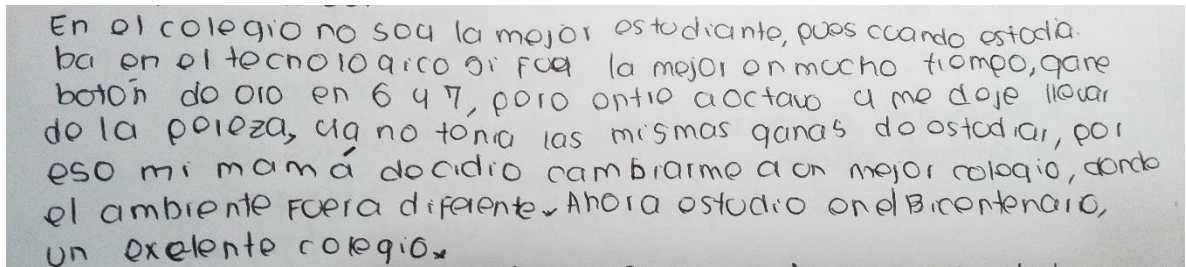 En el colegio no soy la mejor estudiante, pues cuando estudia.
ba en el tecnologico si fue la mejor en mucho tiempo, gane
botón de oro en 6 y 7, pero entre a octavo y me deje llevar
de la pereza, ya no tenia las mismas ganas de estudiar, por
eso mi mamá decidio cambiarme a un mejor colegio, donde
el ambiente fuera diferente. Ahora estudio en el Bicentenario,
un exelente colegio.